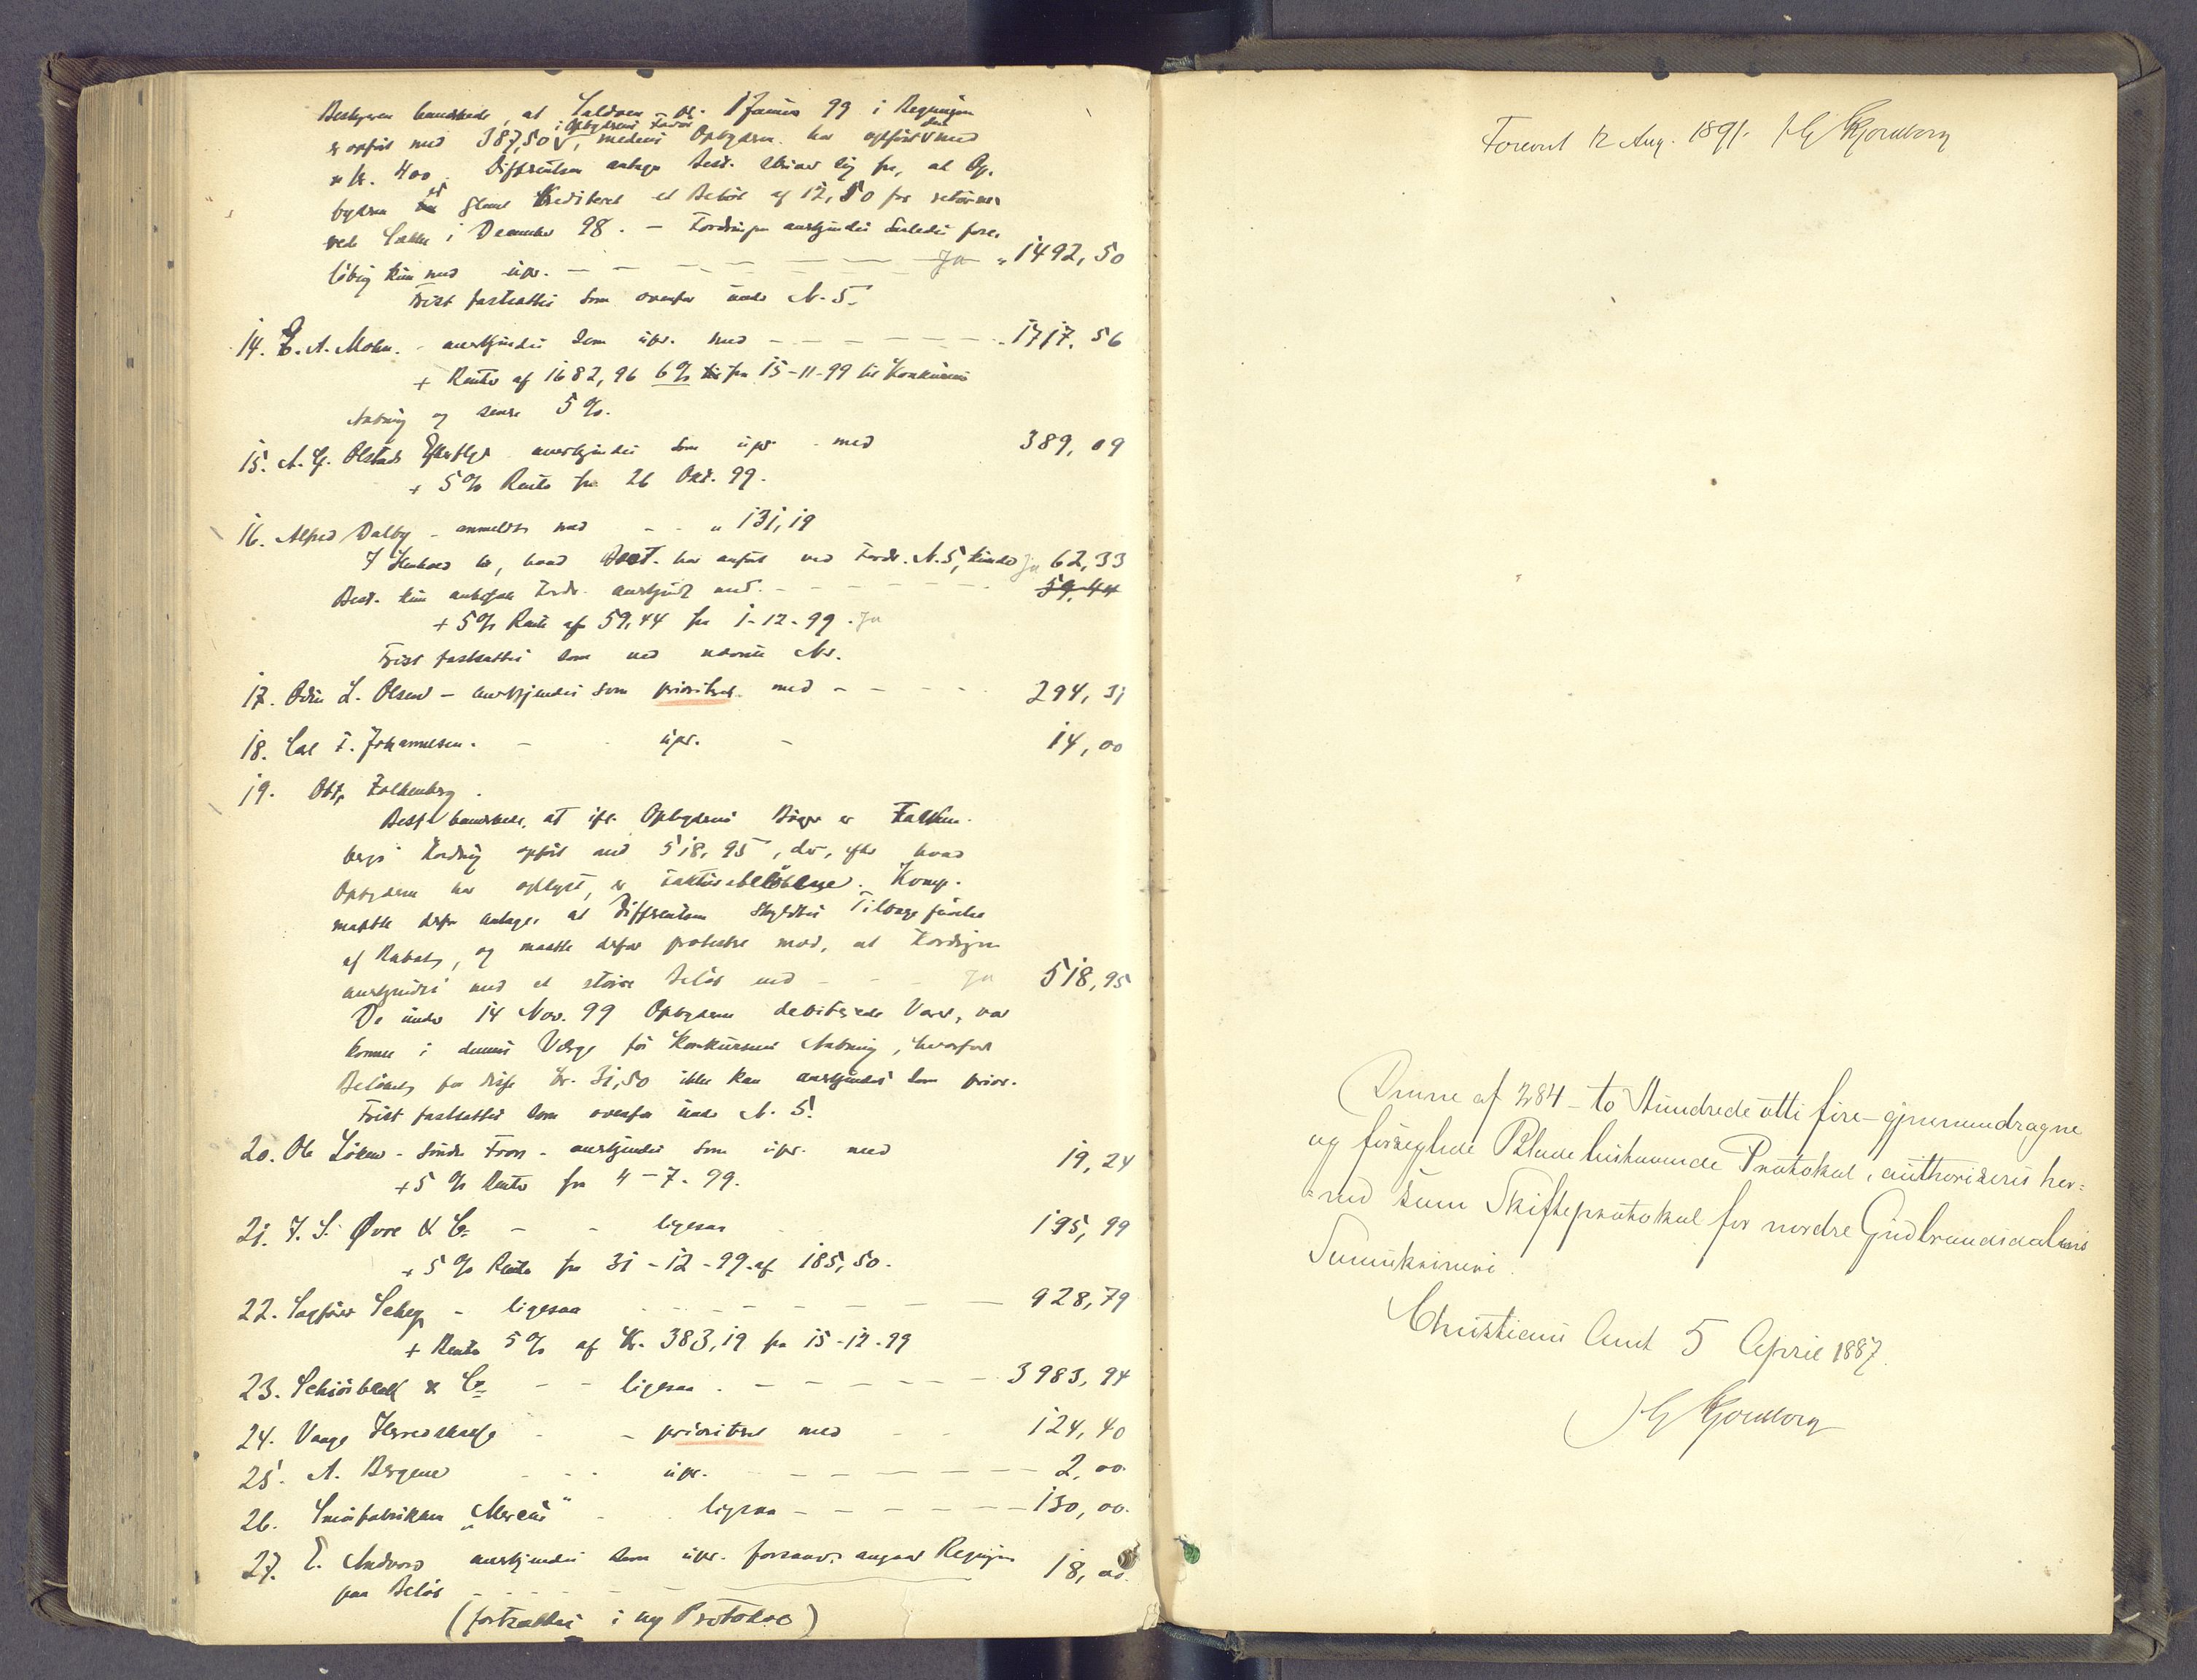 Bestyren bemærkede, at Saldoen pr. 1 Januar 99 i Regningen
er opført med 387,50 i Opbyderens Favør, medens Opbyderen har opført den med
" kr. 400. Differentsen antager Best. skriver sig fra, at Op-
byderen er glemt krediteret et Beløb af 12,50 for retourne-
rede Sække i December 98. – Fordringen anerkjendes saaledes fore-
løbig kun med upr. – – – – – Ja " 1492,50
Frist fastsættes som ovenfor under N. 5.
14. E. A. Mohn. – anerkjendes som upr. med – – – – – 1717,56
+ Rente af 1682,96 6% fra 15-11-99 til Konkursens
Aabning og senere 5%.
15. A. G. Olstads Efterflgr anerkjendes som upr. med 389,09
+ 5% Rente fra 26 Okt. 99.
16. Alfred Dalby – anmeldt med – – " 131,19
I Henhold til, hvad Best. har anført ved Fordr. N. 5, kunde Ja 62,33
Best. kun anbefale Fordr. anerkjendt med. – – – – – 59,44
+ 5% Rente af 59,44 fra 1-12-99. Ja
Frist fastsættes som ved nævnte Nr.
17. Odin L. Olsen – anerkjendes som prioriteret med – – – – 294,31
18. Carl F. Johannesen. – upr. – 14,00
19. Otto Falkenberg.
Best. bemærkede, at ifl. Opbyderens Bøger er Falken-
bergs Fordring opført med 518,95, der, efter hvad
Opbyderen har oplyst, er Fakturabeløbene. Komp.
maatte derfor antage, at Differentsen skyldtes Tilbageførelse
af Rabat, og maatte derfor protestere mod, at Fordringen
anerkjendes med et større Beløb end – – – Ja 518,95
De under 14 Nov. 99 Opbyderen debiterede Varer, var
komne i dennes Værge før Konkursens Aabning, hvorfor
Beløbet for disse Kr. 31,50 ikke kan anerkjendes som prior.
Frist fastsættes som ovenfor under N. 5.
20. Ole Løken – Søndre Fron – anerkjendes som upr. med 19,24
+ 5% Rente fra 4-7-99.
21. I. S. Øvre & Co – – ligesaa 195,99
+ 5% Rente fra 31-12-99 af 185,50.
22. Sagfører Scheg – ligesaa – – – – – – 928,79
+ Rente 5% af Kr. 383,19 fra 15-12-99
23. Schiørbeck & Co – – ligesaa. – – – – – – 3983,94
24. Vaage Herredskasse – – prioriteret med – – 124,40
25. A. Bergene – – – upr. – – – – – – 2,00
26. Smørfabrikken „Mercur" – ligesaa – – – – – – 130,00.
27. E. Andvord anerkjendes som upr. forsaavidt angaar Regningen 18,00.
paa Beløb – – – – –
(fortsættes i ny Protokol)
Forevist 12 Aug. 1891.
Denne af 284 – to Hundrede otti fire – gjennemdragne
og forseglede Blade bestaaende Protokol, authoriseres her-
=ved som Skifteprotokol for nordre Gudbrandsdalens
Sorenskriveri.
Christians Amt 5 April 1887.